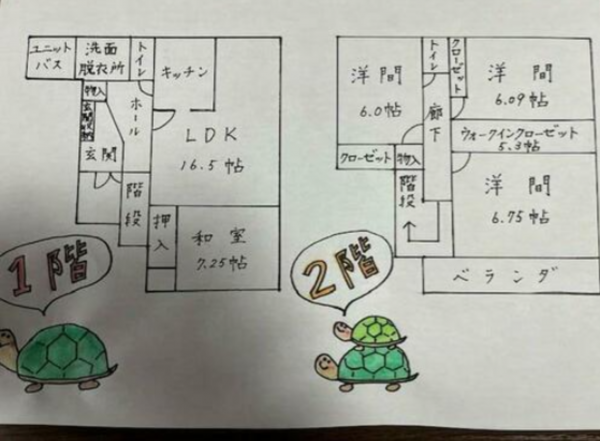 ユニット
バス
洗面
脱衣所
トイレ
キッチン
物入
玄関収納
ホール
玄関
LDK
16.5帖
階段
押入
和室
7.25帖
1階
洋間
6.0帖
トイレ
クローゼット
洋間
6.09帖
廊下
ウォークインクローゼット
5.3帖
クローゼット
物入
階段
洋間
6.75帖
ベランダ
2階